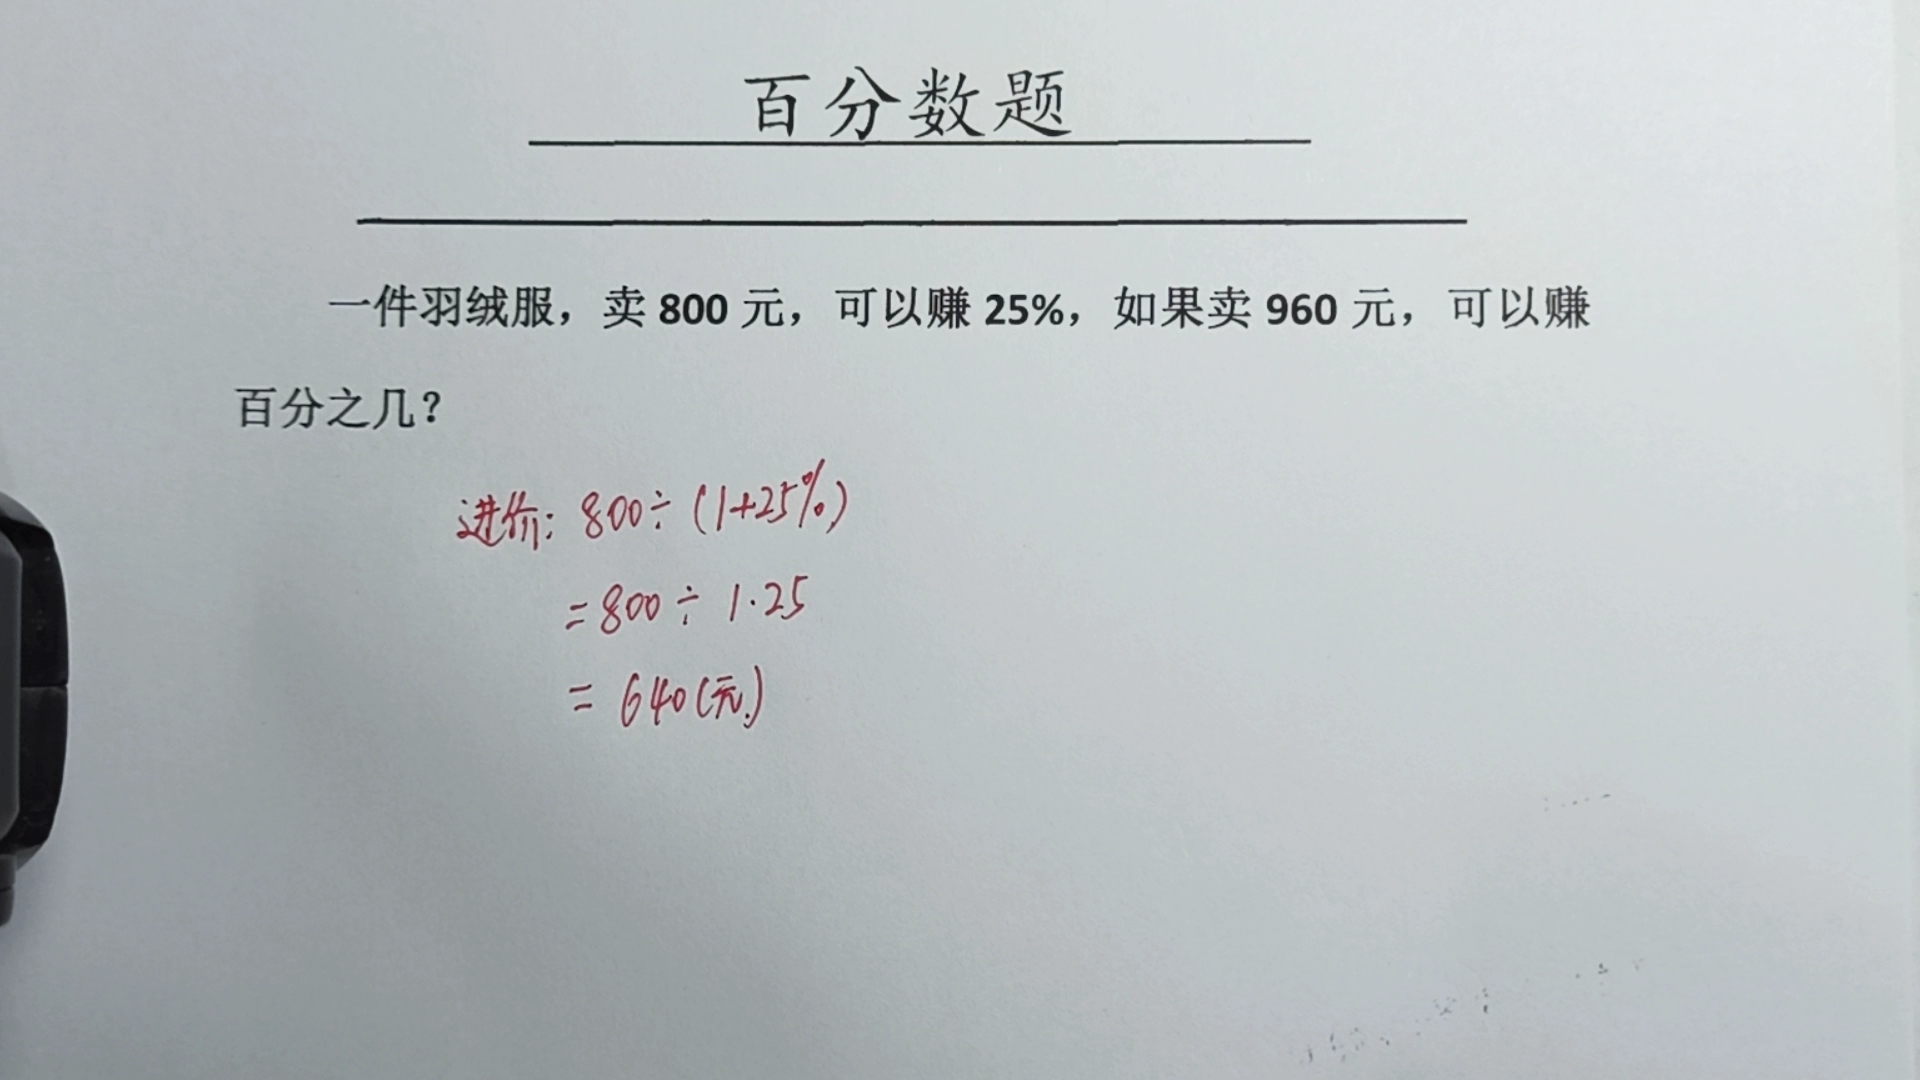 百分数题
一件羽绒服，卖 800 元，可以赚 25%，如果卖 960 元，可以赚
百分之几？
进价：800÷(1+25%)
=800÷1.25
=640(元)